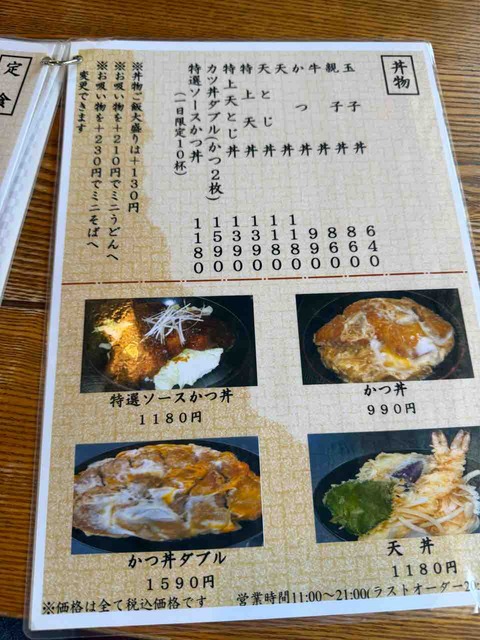 定食
丼物
玉子丼 640
親子丼 860
牛丼 860
かつ丼 990
天丼 1180
天とじ丼 1180
特上天丼 1390
特上天とじ丼 1390
カツ丼ダブル(かつ2枚) 1590
特選ソースかつ丼 1180
(一日限定10杯)
※丼物ご飯大盛りは+130円
※お吸い物を+210円でミニうどんへ
※お吸い物を+230円でミニそばへ
変更できます
特選ソースかつ丼
1180円
かつ丼
990円
かつ丼ダブル
1590円
天丼
1180円
※価格は全て税込価格です
営業時間11:00~21:00(ラストオーダー2